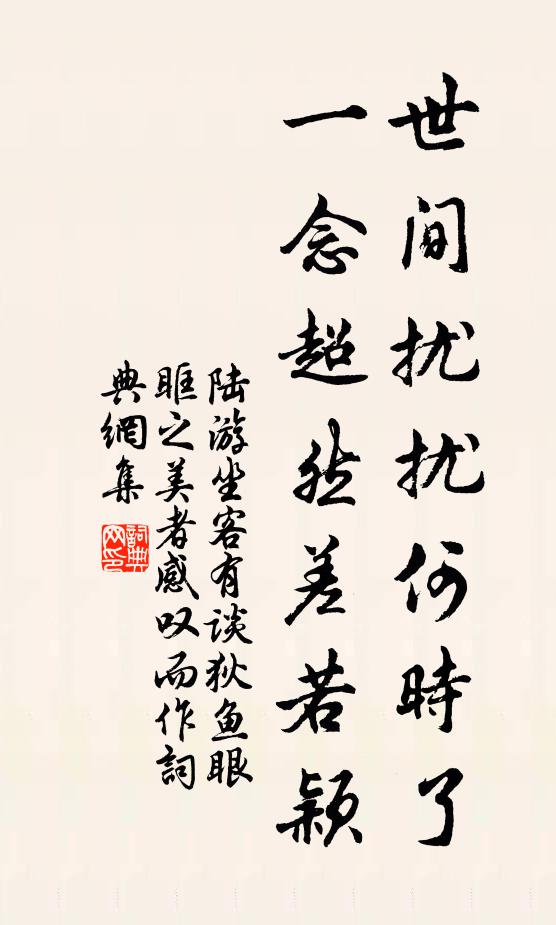 世间扰扰何時了
一念超然差若颖
陆游坐客有谈狄鱼眼
眶之美者感叹而作詞
典網集
詞典
网印